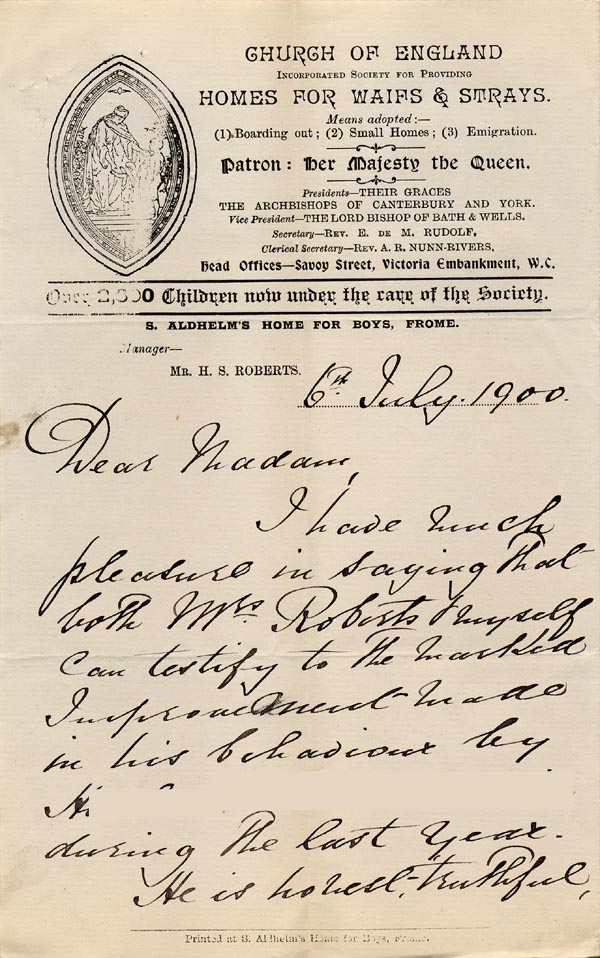 CHURCH OF ENGLAND
INCORPORATED SOCIETY FOR PROVIDING
HOMES FOR WAIFS & STRAYS.
Means adopted:—
(1) Boarding out; (2) Small Homes; (3) Emigration.
Patron: Her Majesty the Queen.
Presidents—THEIR GRACES
THE ARCHBISHOPS OF CANTERBURY AND YORK.
Vice President—THE LORD BISHOP OF BATH & WELLS.
Secretary—REV. E. DE M. RUDOLF,
Clerical Secretary—REV. A. R. NUNN-RIVERS,
Head Offices—Savoy Street, Victoria Embankment, W.C.
Over 2,300 Children now under the care of the Society.
S. ALDHELM'S HOME FOR BOYS, FROME.
Manager—
MR. H. S. ROBERTS.
6th July. 1900.
Dear Madam,
I have much
pleasure in saying that
both Mrs. Roberts & myself
can testify to the marked
Improvement made
in his behaviour by
H.
during the last year.
He is honest, truthful,
Printed at S. Aldhelm's Home for Boys, Frome.